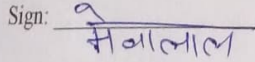 Sign: मेवालाल